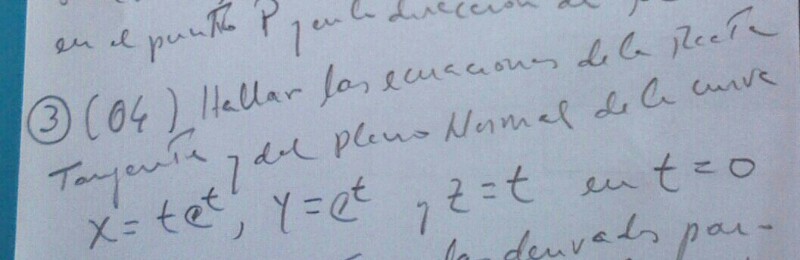 en el punto P y en la direccion de
③ (04) Hallar las ecuaciones de la Recta
Tangente y del plano Normal de la curva
x = te^t, y = e^t, z = t en t = 0
la derivada par-